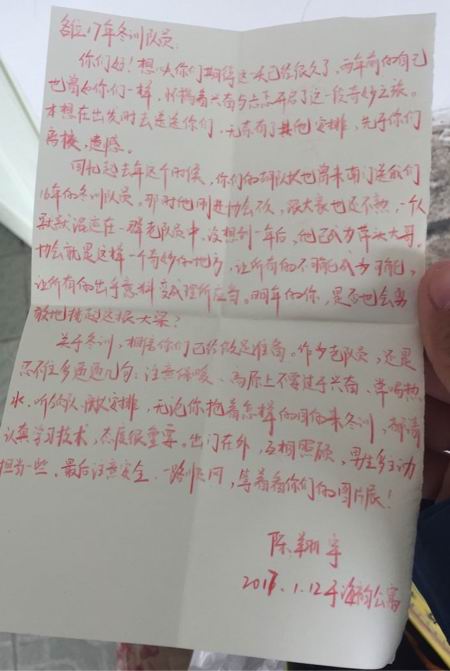 各位17年冬训队员:
你们好!想必你们期待这一天已经很久了,两年前的自己
也曾如你们一样,怀揣着兴奋与忐忑开启了这一段奇妙之旅。
本想在出发时去送送你们,无奈有了其他安排,先于你们
离校,遗憾。
回忆起去年这个时候,你们的胡队长也曾来南门送我们
16年的冬训队员,那时他刚进协会不久,跟大家也还不熟,一个人
默默混迹在一群老队员中,没想到一年后,他已成为带头大哥。
协会就是这样一个奇妙的地方,让所有的不可能成为可能,
让所有的出乎意料变成理所应当。明年的你,是否也会勇
敢地挑起这根大梁?
关于冬训,相信你们已经做足准备。作为老队员,还是
忍不住多逼逼几句:注意保暖、高原上不要过于兴奋、常喝热
水、听领队、教练安排,无论你抱着怎样的目的来冬训,都请
认真学习技术,态度很重要。出门在外,互相照顾,男生多主动
担当一些。最后注意安全,一路顺风,等着看你们的图片展!
陈翔宇
2017.1.12于海韵公寓